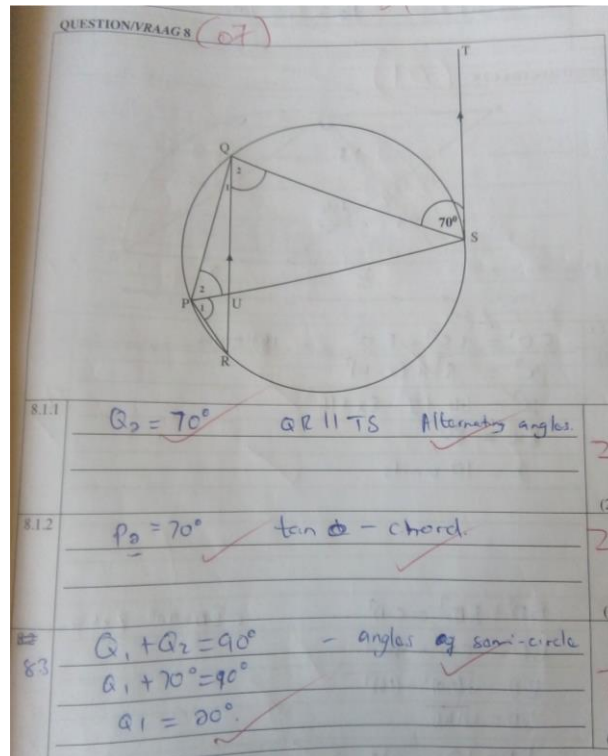 QUESTION/VRAAG 8 (07)
T
Q
2
1
70°
S
2
P
1
U
R
8.1.1 Q₂ = 70° QR || TS Alternating angles.
2
8.1.2 P₂ = 70° tan - chord.
2
83 Q₁ + Q₂ = 90° - angles of semi-circle
Q₁ + 70° = 90°
Q1 = 20°.